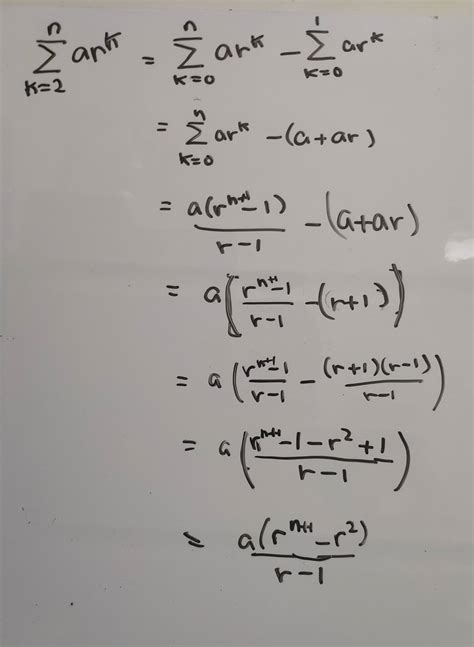 \sum_{k=2}^{n} ar^k = \sum_{k=0}^{n} ar^k - \sum_{k=0}^{1} ar^k
= \sum_{k=0}^{n} ar^k - (a+ar)
= \frac{a(r^{n+1}-1)}{r-1} - (a+ar)
= a\left(\frac{r^{n+1}-1}{r-1} - (r+1)\right)
= a\left(\frac{r^{n+1}-1}{r-1} - \frac{(r+1)(r-1)}{r-1}\right)
= a\left(\frac{r^{n+1}-1-r^2+1}{r-1}\right)
= \frac{a(r^{n+1}-r^2)}{r-1}